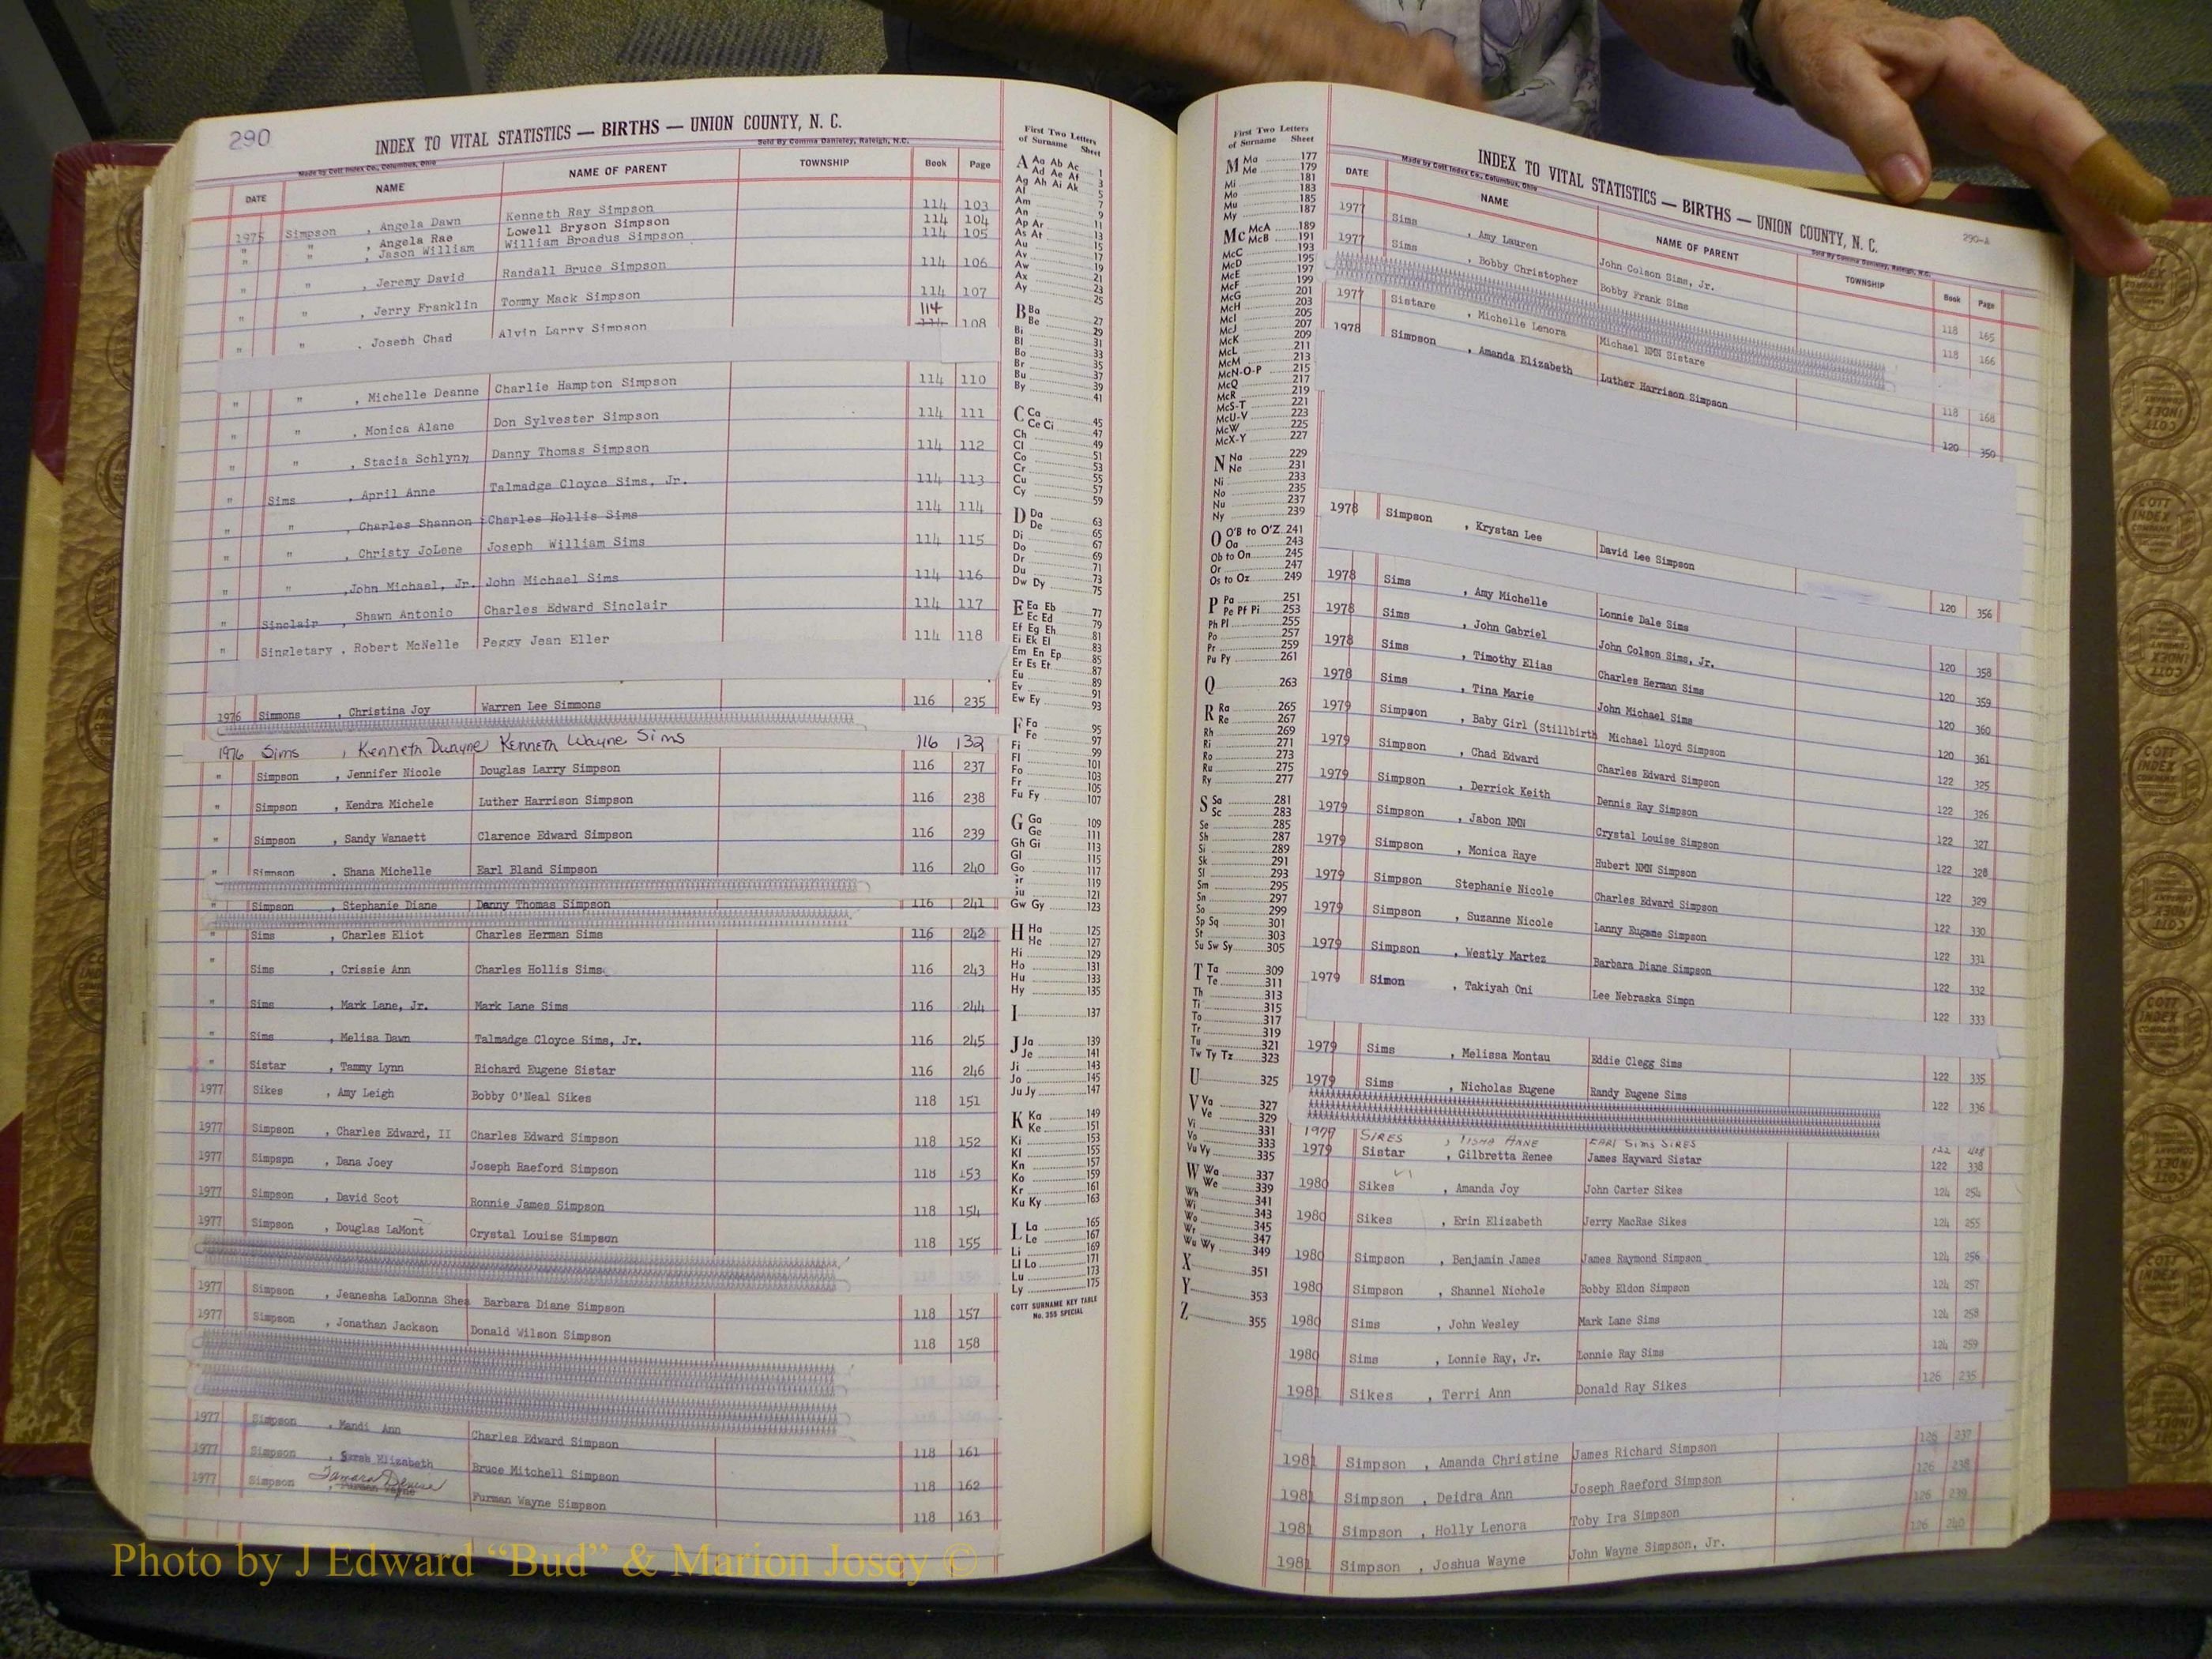 290
INDEX TO VITAL STATISTICS — BIRTHS — UNION COUNTY, N. C.
Made by Cott Index Co., Columbus, Ohio
Sold By Comma Danieley, Raleigh, N.C.
DATE NAME NAME OF PARENT TOWNSHIP Book Page
1975 Simpson , Angela Dawn Kenneth Ray Simpson 114 103
" " , Angela Rae Lowell Bryson Simpson 114 104
" " , Jason William William Broadus Simpson 114 105
" " , Jeremy David Randall Bruce Simpson 114 106
" " , Jerry Franklin Tommy Mack Simpson 114 107
" " , Joseph Chad Alvin Larry Simpson 114 108
" " , Michelle Deanne Charlie Hampton Simpson 114 110
" " , Monica Alane Don Sylvester Simpson 114 111
" " , Stacia Schlynn Danny Thomas Simpson 114 112
" Sims , April Anne Talmadge Cloyce Sims, Jr. 114 113
" " , Charles Shannon Charles Hollis Sims 114 114
" " , Christy JoLene Joseph William Sims 114 115
" " ,John Michael, Jr. John Michael Sims 114 116
" Sinclair , Shawn Antonio Charles Edward Sinclair 114 117
" Singletary , Robert McNelle Peggy Jean Eller 114 118
1976 Simmons , Christina Joy Warren Lee Simmons 116 235
1976 Sims , Kenneth Dwayne Kenneth Wayne Sims 116 132
" Simpson , Jennifer Nicole Douglas Larry Simpson 116 237
" Simpson , Kendra Michele Luther Harrison Simpson 116 238
" Simpson , Sandy Wanaett Clarence Edward Simpson 116 239
" Simpson , Shana Michelle Earl Bland Simpson 116 240
" Simpson , Stephanie Diane Danny Thomas Simpson 116 241
" Sims , Charles Eliot Charles Herman Sims 116 242
" Sims , Crissie Ann Charles Hollis Sims 116 243
" Sims , Mark Lane, Jr. Mark Lane Sims 116 244
" Sims , Melisa Dawn Talmadge Cloyce Sims, Jr. 116 245
" Sistar , Tammy Lynn Richard Eugene Sistar 116 246
1977 Sikes , Amy Leigh Bobby O'Neal Sikes 118 151
1977 Simpson , Charles Edward, II Charles Edward Simpson 118 152
1977 Simpspn , Dana Joey Joseph Raeford Simpson 118 153
1977 Simpson , David Scot Ronnie James Simpson 118 154
1977 Simpson , Douglas LaMont Crystal Louise Simpson 118 155
1977 Simpson , Jeanesha LaDonna Shea Barbara Diane Simpson 118 157
1977 Simpson , Jonathan Jackson Donald Wilson Simpson 118 158
1977 Simpson , Mandi Ann Charles Edward Simpson 118 161
1977 Simpson , Sarah Elizabeth Bruce Mitchell Simpson 118 162
1977 Simpson , Tamara Denise Furman Wayne Furman Wayne Simpson 118 163
First Two Letters
of Surname Sheet
A Aa Ab Ac 1
Ad Ae Af 3
Ag Ah Ai Ak 5
Al 7
Am 9
An 11
Ap Ar 13
As At 15
Au 17
Av 19
Aw 21
Ax 23
Ay 25
B Ba 27
Be 29
Bi 31
Bl 33
Bo 35
Br 37
Bu 39
By 41
C Ca 45
Ce Ci 47
Ch 49
Cl 51
Co 53
Cr 55
Cu 57
Cy 59
D Da 63
De 65
Di 67
Do 69
Dr 71
Du 73
Dw Dy 75
E Ea Eb 77
Ec Ed 79
Ef Eg Eh 81
Ei Ek El 83
Em En Ep 85
Er Es Et 87
Eu 89
Ev 91
Ew Ey 93
F Fa 95
Fe 97
Fi 99
Fl 101
Fo 103
Fr 105
Fu Fy 107
G Ga 109
Ge 111
Gh Gi 113
Gl 115
Go 117
Gr 119
Gu 121
Gw Gy 123
H Ha 125
He 127
Hi 129
Ho 131
Hu 133
Hy 135
I 137
J Ja 139
Je 141
Ji 143
Jo 145
Ju Jy 147
K Ka 149
Ke 151
Ki 153
Kl 155
Kn 157
Ko 159
Kr 161
Ku Ky 163
L La 165
Le 167
Li 169
Ll Lo 171
Lu 173
Ly 175
COTT SURNAME KEY TABLE
No. 355 SPECIAL
First Two Letters
of Surname Sheet
M Ma 177
Me 179
Mi 181
Mo 183
Mu 185
My 187
Mc McA 189
McB 191
McC 193
McD 195
McE 197
McF 199
McG 201
McH 203
McI 205
McJ 207
McK 209
McL 211
McM 213
McN-O-P 215
McQ 217
McR 219
McS-T 221
McU-V 223
McW 225
McX-Y 227
N Na 229
Ne 231
Ni 233
No 235
Nu 237
Ny 239
O O'B to O'Z 241
Oa 243
Ob to On 245
Or 247
Os to Oz 249
P Pa 251
Pe Pf Pi 253
Ph Pl 255
Po 257
Pr 259
Pu Py 261
Q 263
R Ra 265
Re 267
Rh 269
Ri 271
Ro 273
Ru 275
Ry 277
S Sa 281
Sc 283
Se 285
Sh 287
Si 289
Sk 291
Sl 293
Sm 295
Sn 297
So 299
Sp Sq 301
St 303
Su Sw Sy 305
T Ta 309
Te 311
Th 313
Ti 315
To 317
Tr 319
Tu 321
Tw Ty Tz 323
U 325
V Va 327
Ve 329
Vi 331
Vo 333
Vu Vy 335
W Wa 337
We 339
Wh 341
Wi 343
Wo 345
Wr 347
Wu Wy 349
X 351
Y 353
Z 355
290-A
INDEX TO VITAL STATISTICS — BIRTHS — UNION COUNTY, N. C.
Made by Cott Index Co., Columbus, Ohio
Sold By Comma Danieley, Raleigh, N.C.
DATE NAME NAME OF PARENT TOWNSHIP Book Page
1977 Sims , Amy Lauren John Colson Sims, Jr. 118 165
1977 Sims , Bobby Christopher Bobby Frank Sims 118 166
1977 Sistare , Michelle Lenora Michael NMN Sistare 118 168
1978 Simpson , Amanda Elizabeth Luther Harrison Simpson 120 350
1978 Simpson , Krystan Lee David Lee Simpson 120 356
1978 Sims , Amy Michelle Lonnie Dale Sims 120 358
1978 Sims , John Gabriel John Colson Sims, Jr. 120 359
1978 Sims , Timothy Elias Charles Herman Sims 120 360
1978 Sims , Tina Marie John Michael Sims 120 361
1979 Simpson , Baby Girl (Stillbirth Michael Lloyd Simpson 122 325
1979 Simpson , Chad Edward Charles Edward Simpson 122 326
1979 Simpson , Derrick Keith Dennis Ray Simpson 122 327
1979 Simpson , Jabon NMN Crystal Louise Simpson 122 328
1979 Simpson , Monica Raye Hubert NMN Simpson 122 329
1979 Simpson Stephanie Nicole Charles Edward Simpson 122 330
1979 Simpson , Suzanne Nicole Lanny Eugene Simpson 122 331
1979 Simpson , Westly Martez Barbara Diane Simpson 122 332
1979 Simon , Takiyah Oni Lee Nebraska Simon 122 333
1979 Sims , Melissa Montau Eddie Clegg Sims 122 335
1979 Sims , Nicholas Eugene Randy Eugene Sims 122 336
1979 SIRES , TISHA ANNE EARL SIMS SIRES
1979 Sistar , Gilbretta Renee James Hayward Sistar 122 338
1980 Sikes , Amanda Joy John Carter Sikes 124 254
1980 Sikes , Erin Elizabeth Jerry MacRae Sikes 124 255
1980 Simpson , Benjamin James James Raymond Simpson 124 256
1980 Simpson , Shannel Nichole Bobby Eldon Simpson 124 257
1980 Sims , John Wesley Mark Lane Sims 124 258
1980 Sims , Lonnie Ray, Jr. Lonnie Ray Sims 124 259
1981 Sikes , Terri Ann Donald Ray Sikes 126 235
1981 Simpson , Amanda Christine James Richard Simpson 126 237
1981 Simpson , Deidra Ann Joseph Raeford Simpson 126 238
1981 Simpson , Holly Lenora Toby Ira Simpson 126 239
1981 Simpson , Joshua Wayne John Wayne Simpson, Jr. 126 240
Photo by J Edward “Bud” & Marion Josey ©